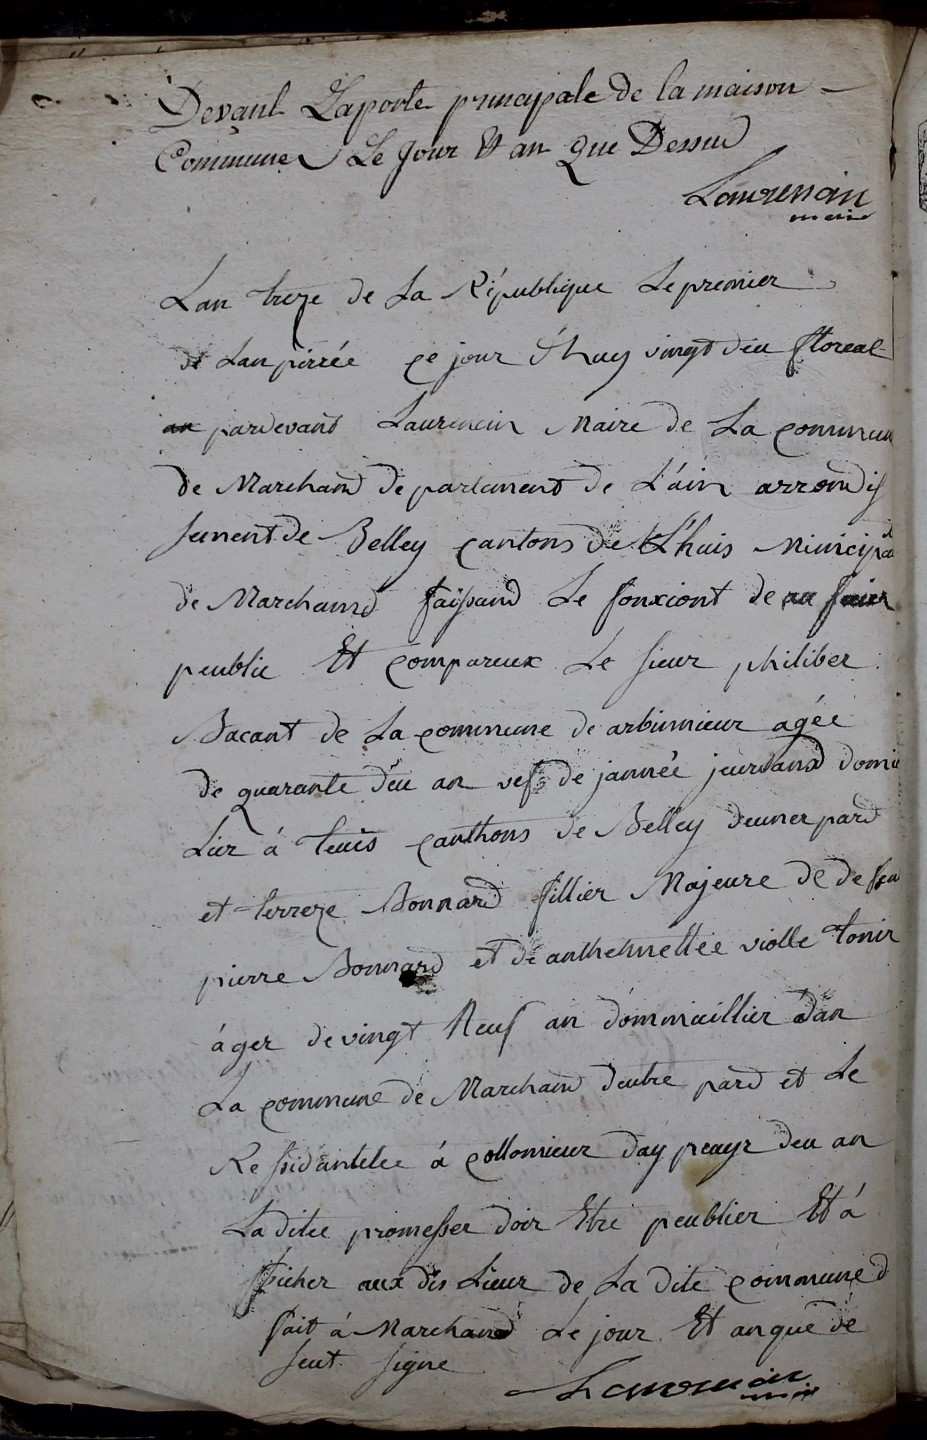 Devant Laporte principale de la maison
Commune Le Jour Et an que Dessu
Laurencin
maire
Lan treze de La République Le premier
de Lan pirrée ce jour d'huy vingt deu floreal
pardevant Laurencin Maire de La commun
de Marchand departement de L'ain arrondis
sement de Belley cantons de L'huis Municip
de Marchand faisand Le fonxiont de
peublic Et compareux Le sieur philiber
Bacant de La commune de arbinnieur agée
de quarante deu an vef de jannée jeurdand domi
Lier á canthons de Belley deuner pard
et terreze Bonnard fillier Majeure de
pierre Bonnard et de anthelmettée violle
áger de vingt Neuf an dommieillier dan
La commune de Marchand deutre pard et Le
Ressidantelee á collomieur deu an
La ditee promesser doir Etre peublier Et á
ficher aux dis Lieur de La dite commune
fait á Marchand Le jour Et anque dé
seut signe
Laurencin
maire